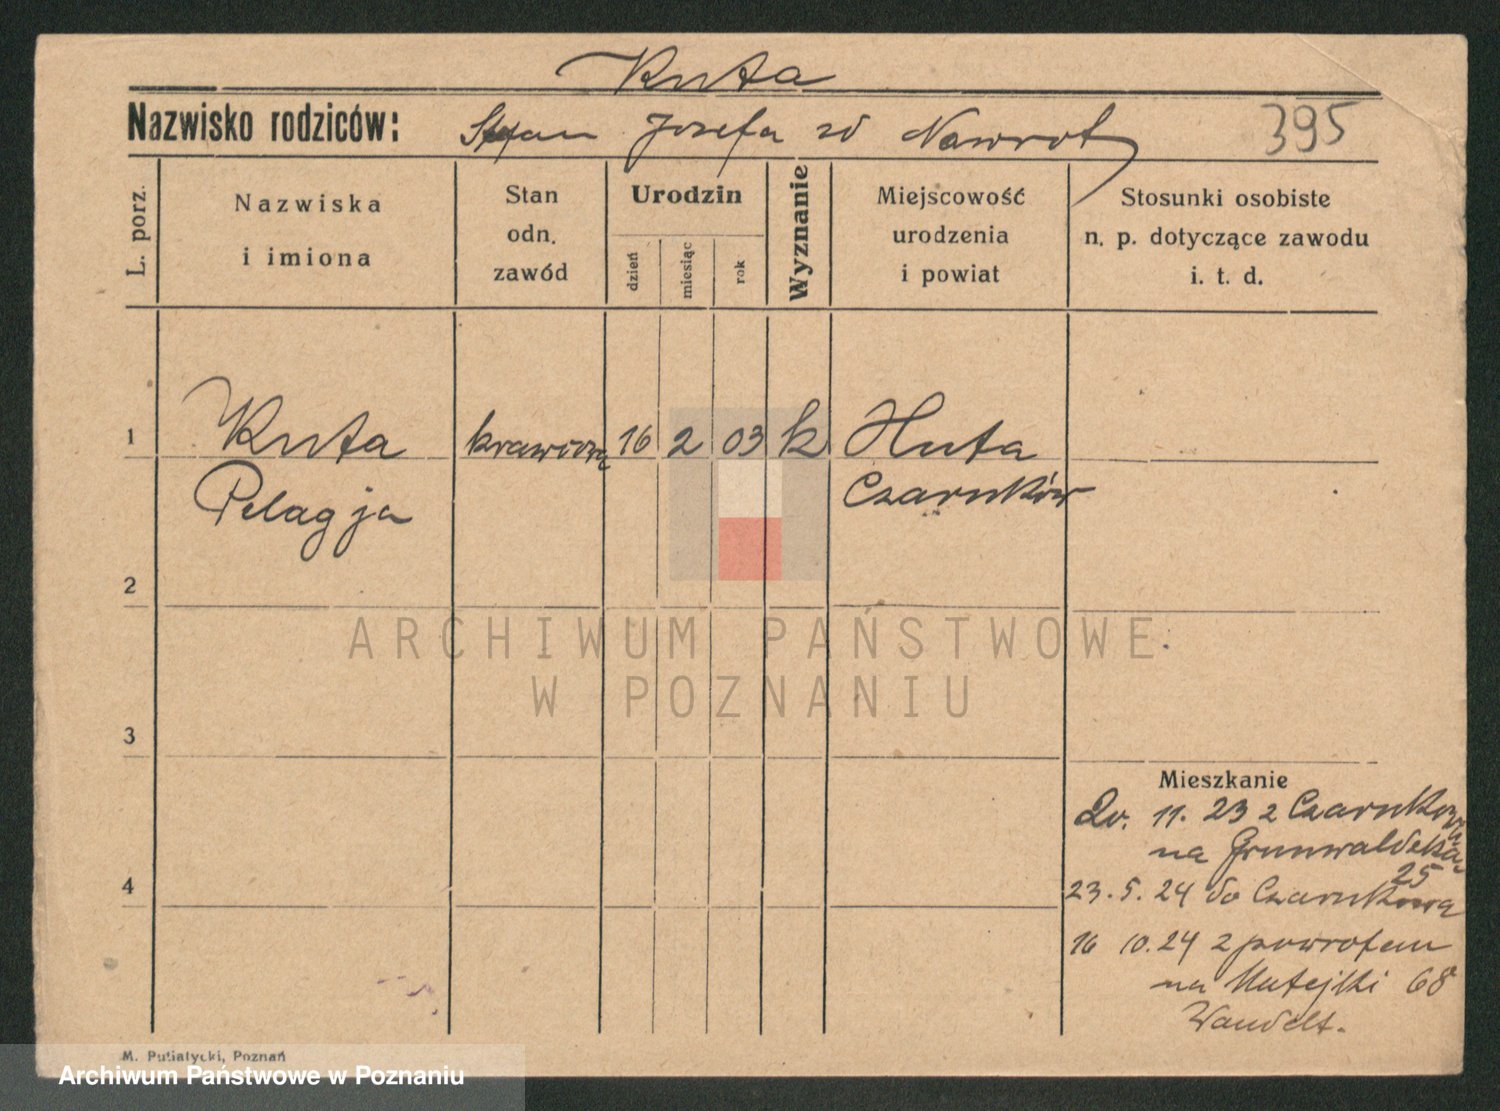 Kuta
Nazwisko rodziców: Stefan Józefa zd Nawrot 395
L. porz.
Nazwiska
i imiona
Stan
odn.
zawód
Urodzin
dzień
miesiąc
rok
Wyznanie
Miejscowość
urodzenia
i powiat
Stosunki osobiste
n. p. dotyczące zawodu
i. t. d.
1 Kuta krawcową 16 2 03 k Huta
Pelagja Czarnków
2
3
4
Mieszkanie
20. 11. 23 z Czarnkowa
na Grunwaldzką
25
23. 5. 24 do Czarnkowa
16 10. 24 z powrotem
na Matejki 68
Wandelt.
M. Putiatycki, Poznań
ARCHIWUM PAŃSTWOWE
W POZNANIU
Archiwum Państwowe w Poznaniu